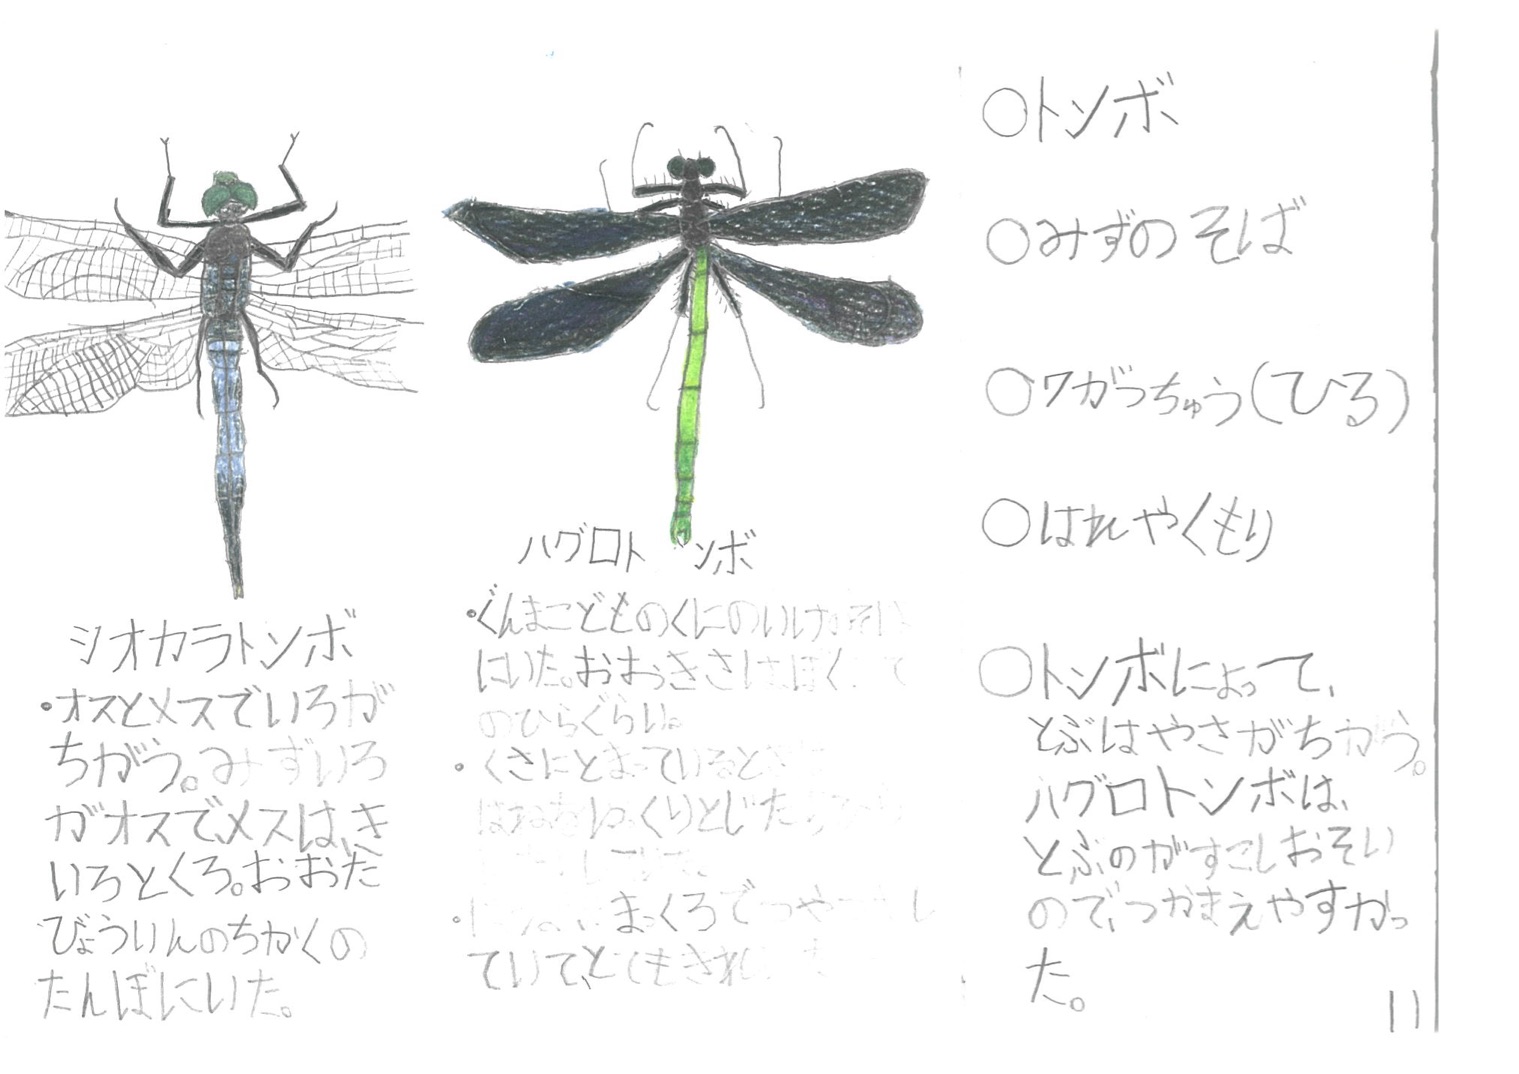 ○トンボ
○みずのそば
○7がつちゅう(ひる)
○はれやくもり
○トンボによって、
とぶはやさがちがう。
ハグロトンボは、
とぶのがすこしおそい
ので、つかまえやすかっ
た。
11
ハグロトンボ
・ぐんまこどものくにのいけの
にいた。おおきさはぼく
のひらぐらい。
・くさにとまっているとき
はねをゆっくりとじた
まっくろでつや
ていて、とてもきれい
シオカラトンボ
・オスとメスでいろが
ちがう。みずいろ
がオスで、メスは、き
いろとくろ。おおた
びょういんのちかくの
たんぼにいた。